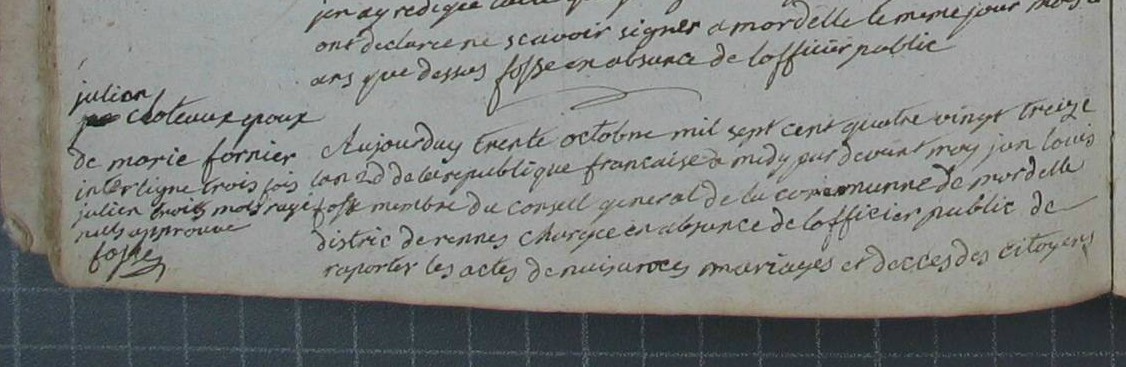 ont declare ne scavoir signer a mordelle le meme jour mois
ans que dessus fosse en absance de lofficier public
julien
choteaux epoux
de marie fornier
interligne trois fois
julien trois mots raye
nuls approuve
fosse
Aujourduy trente octobre mil sept cent quatre vingt treize
lan 2d de la republique francaise a midy par devant moy jan louis
fosse membre du conseil general de la communne de mordelle
distric de rennes chargee en absance de lofficier public de
raporter les actes de naisances mariages et decces des citoyens